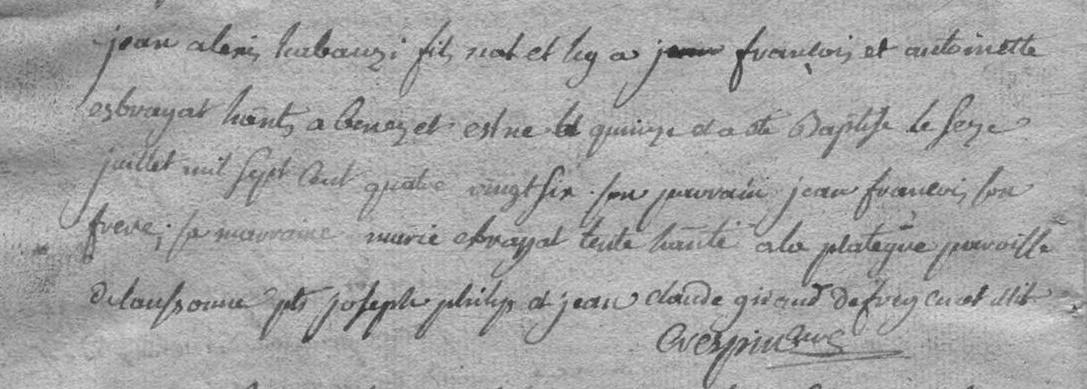 jean alexis habauzi fils nat et leg a jean françois et antoinette
esbrayat habts a benezet est ne le quinze et a ete Baptise le seze
juillet mil sept cent quatre vingt six. son parrain jean francois son
frere; sa marraine marie ebrayat tente habte a la plateyre paroisse
de laussonne pts joseph philip et jean claude giraud de
Crespin cure